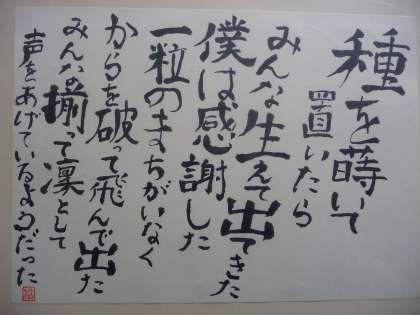 種を蒔いて
置いたら
みんな生えて出てきた
僕は感謝した
一粒のまちがいなく
からを破って飛んで出た
みんな揃って凛として
声をあげているようだった